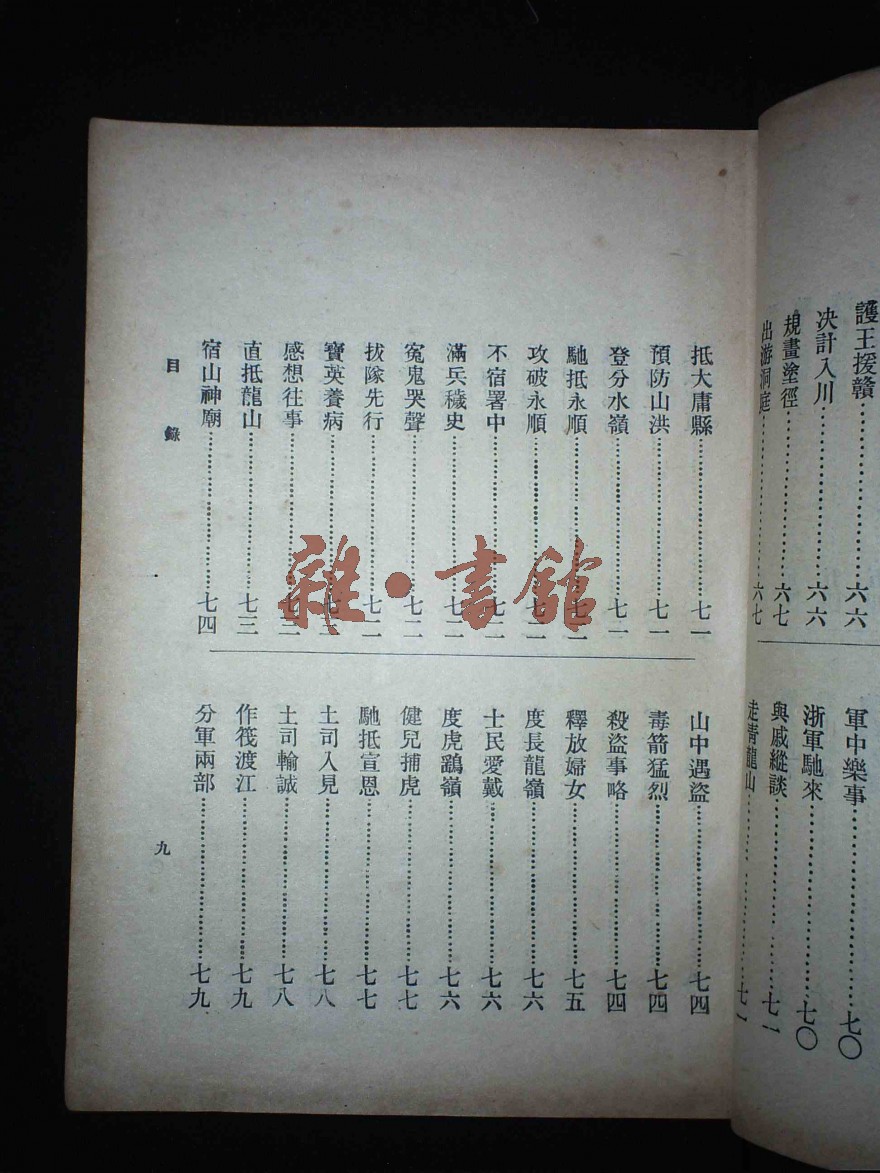 護王援贛……六六
决計入川……六六
規畫塗徑……六七
出游洞庭……六七
軍中樂事……七〇
浙軍馳來……七〇
與戚縱談……七一
走青龍山……七一
抵大庸縣……七一
預防山洪……七一
登分水嶺……七一
馳抵永順……七二
攻破永順……七二
不宿署中……七二
滿兵穢史……七二
寃鬼哭聲……七二
拔隊先行……七二
寶英養病……七三
感想往事……七三
直抵龍山……七三
宿山神廟……七四
山中遇盜……七四
毒箭猛烈……七四
殺盜事略……七四
釋放婦女……七五
度長龍嶺……七六
士民愛戴……七六
度虎鷂嶺……七六
健兒捕虎……七七
馳抵宣恩……七七
土司入見……七八
土司輸誠……七八
作筏渡江……七九
分軍兩部……七九
目錄
九
雜·書館